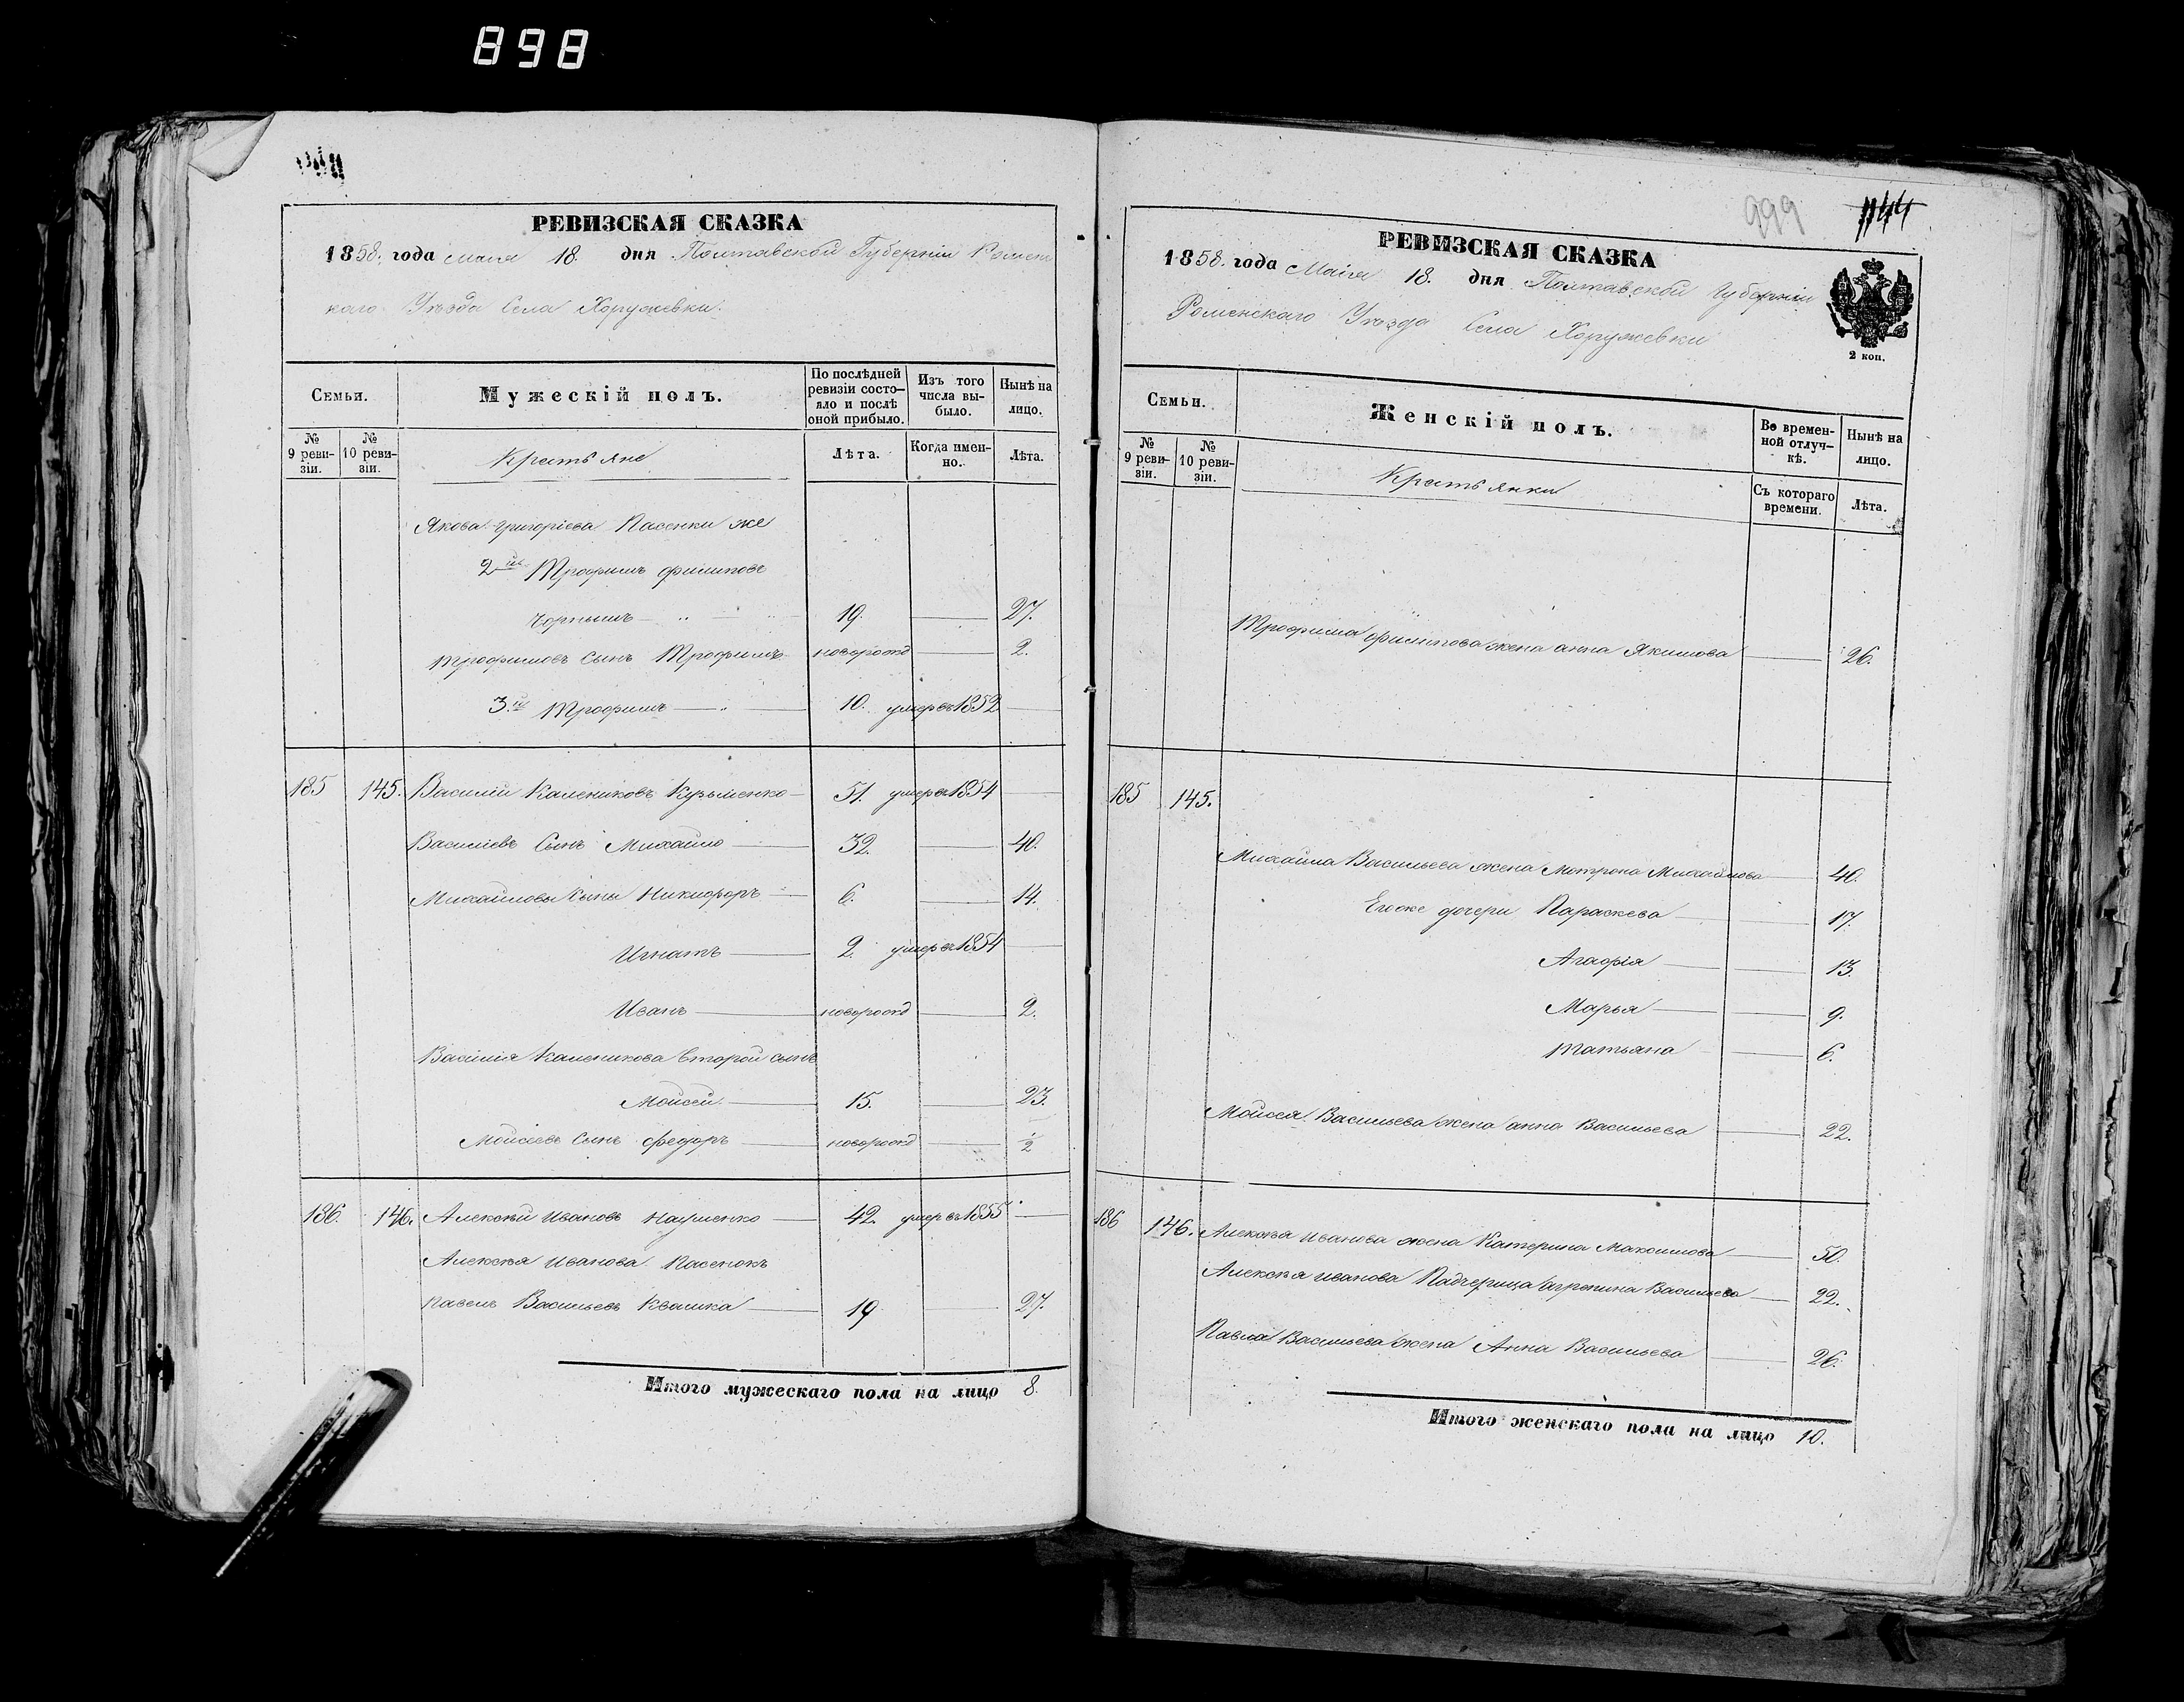 898
РЕВИЗСКАЯ СКАЗКА
1858. года Мая 18. дня Полтавской Губерніи Ромен
скаго Уѣзда Села Хоружевки.
Семьи.
Мужескій полъ.
По послѣдней ревизіи состо-яло и послѣ оной прибыло.
Изъ того числа вы-было.
Нынѣ на лицо.
№ 9 реви-зіи.
№ 10 реви-зіи.
Крестьяне
Лѣта.
Когда имен-но.
Лѣта.
Якова Григоріева Пасенки же
2й Трофимъ Филиповъ
Чорнышъ 19. 27.
Трофимовъ Сынъ Трофимъ новорожд 2.
3й Трофимъ 10. умеръ въ 1852
185 145. Василій Калениковъ Кузьменко 51. умеръ въ 1854
Василіевъ Сынъ Михайло 32. 40.
Михайловы Сыны Никифоръ 6. 14.
Игнатъ 2. умеръ въ 1854
Иванъ новорожд 2.
Василія Каленикова второй сынъ
Мойсей 15. 23.
Мойсіевъ Сынъ Федоръ новорожд 1/2
186. 146. Алексѣй Ивановъ Науменко 42. умеръ въ 1855
Алексѣя Иванова Пасенокъ
Павелъ Васильевъ Квашка 19 27.
Итого мужескаго пола на лицо 8.
999 1144
РЕВИЗСКАЯ СКАЗКА
1858. года Маія 18. дня Полтавской Губерніи
Роменскаго Уѣзда Села Хоружевки
2 коп.
Семьи.
Женскій полъ.
Во времен-ной отлуч-кѣ.
Нынѣ на лицо.
№ 9 реви-зіи.
№ 10 реви-зіи.
Крестьянки
Съ котораго времени.
Лѣта.
Трофима Филипова жена Анна Якимова 26.
185 145.
Михайла Васильева жена Мотрона Михайлова 40.
Егоже дочери Параскева 17.
Агафія 13.
Марья 9.
Татьяна 6.
Мойсея Васильева жена Анна Васильева 22.
186 146. Алексѣя Иванова жена Катерина Максимова 50.
Алексѣя Иванова Падчерица Агрепина Васильева 22.
Павла Васильева жена Анна Васильева 26.
Итого женскаго пола на лицо 10.